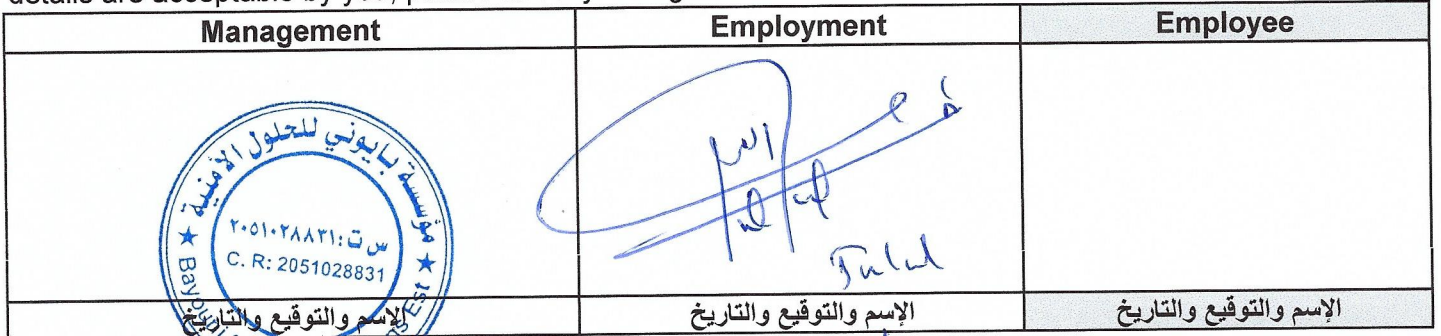 details are acceptable by you,
Management
Employment
Employee
مؤسسة بايوني للحلول الأمنية
س ت: ٢٠٥١٠٢٨٨٣١
C. R: 2051028831
Est
Talal
الإسم والتوقيع والتاريخ
الإسم والتوقيع والتاريخ
الإسم والتوقيع والتاريخ